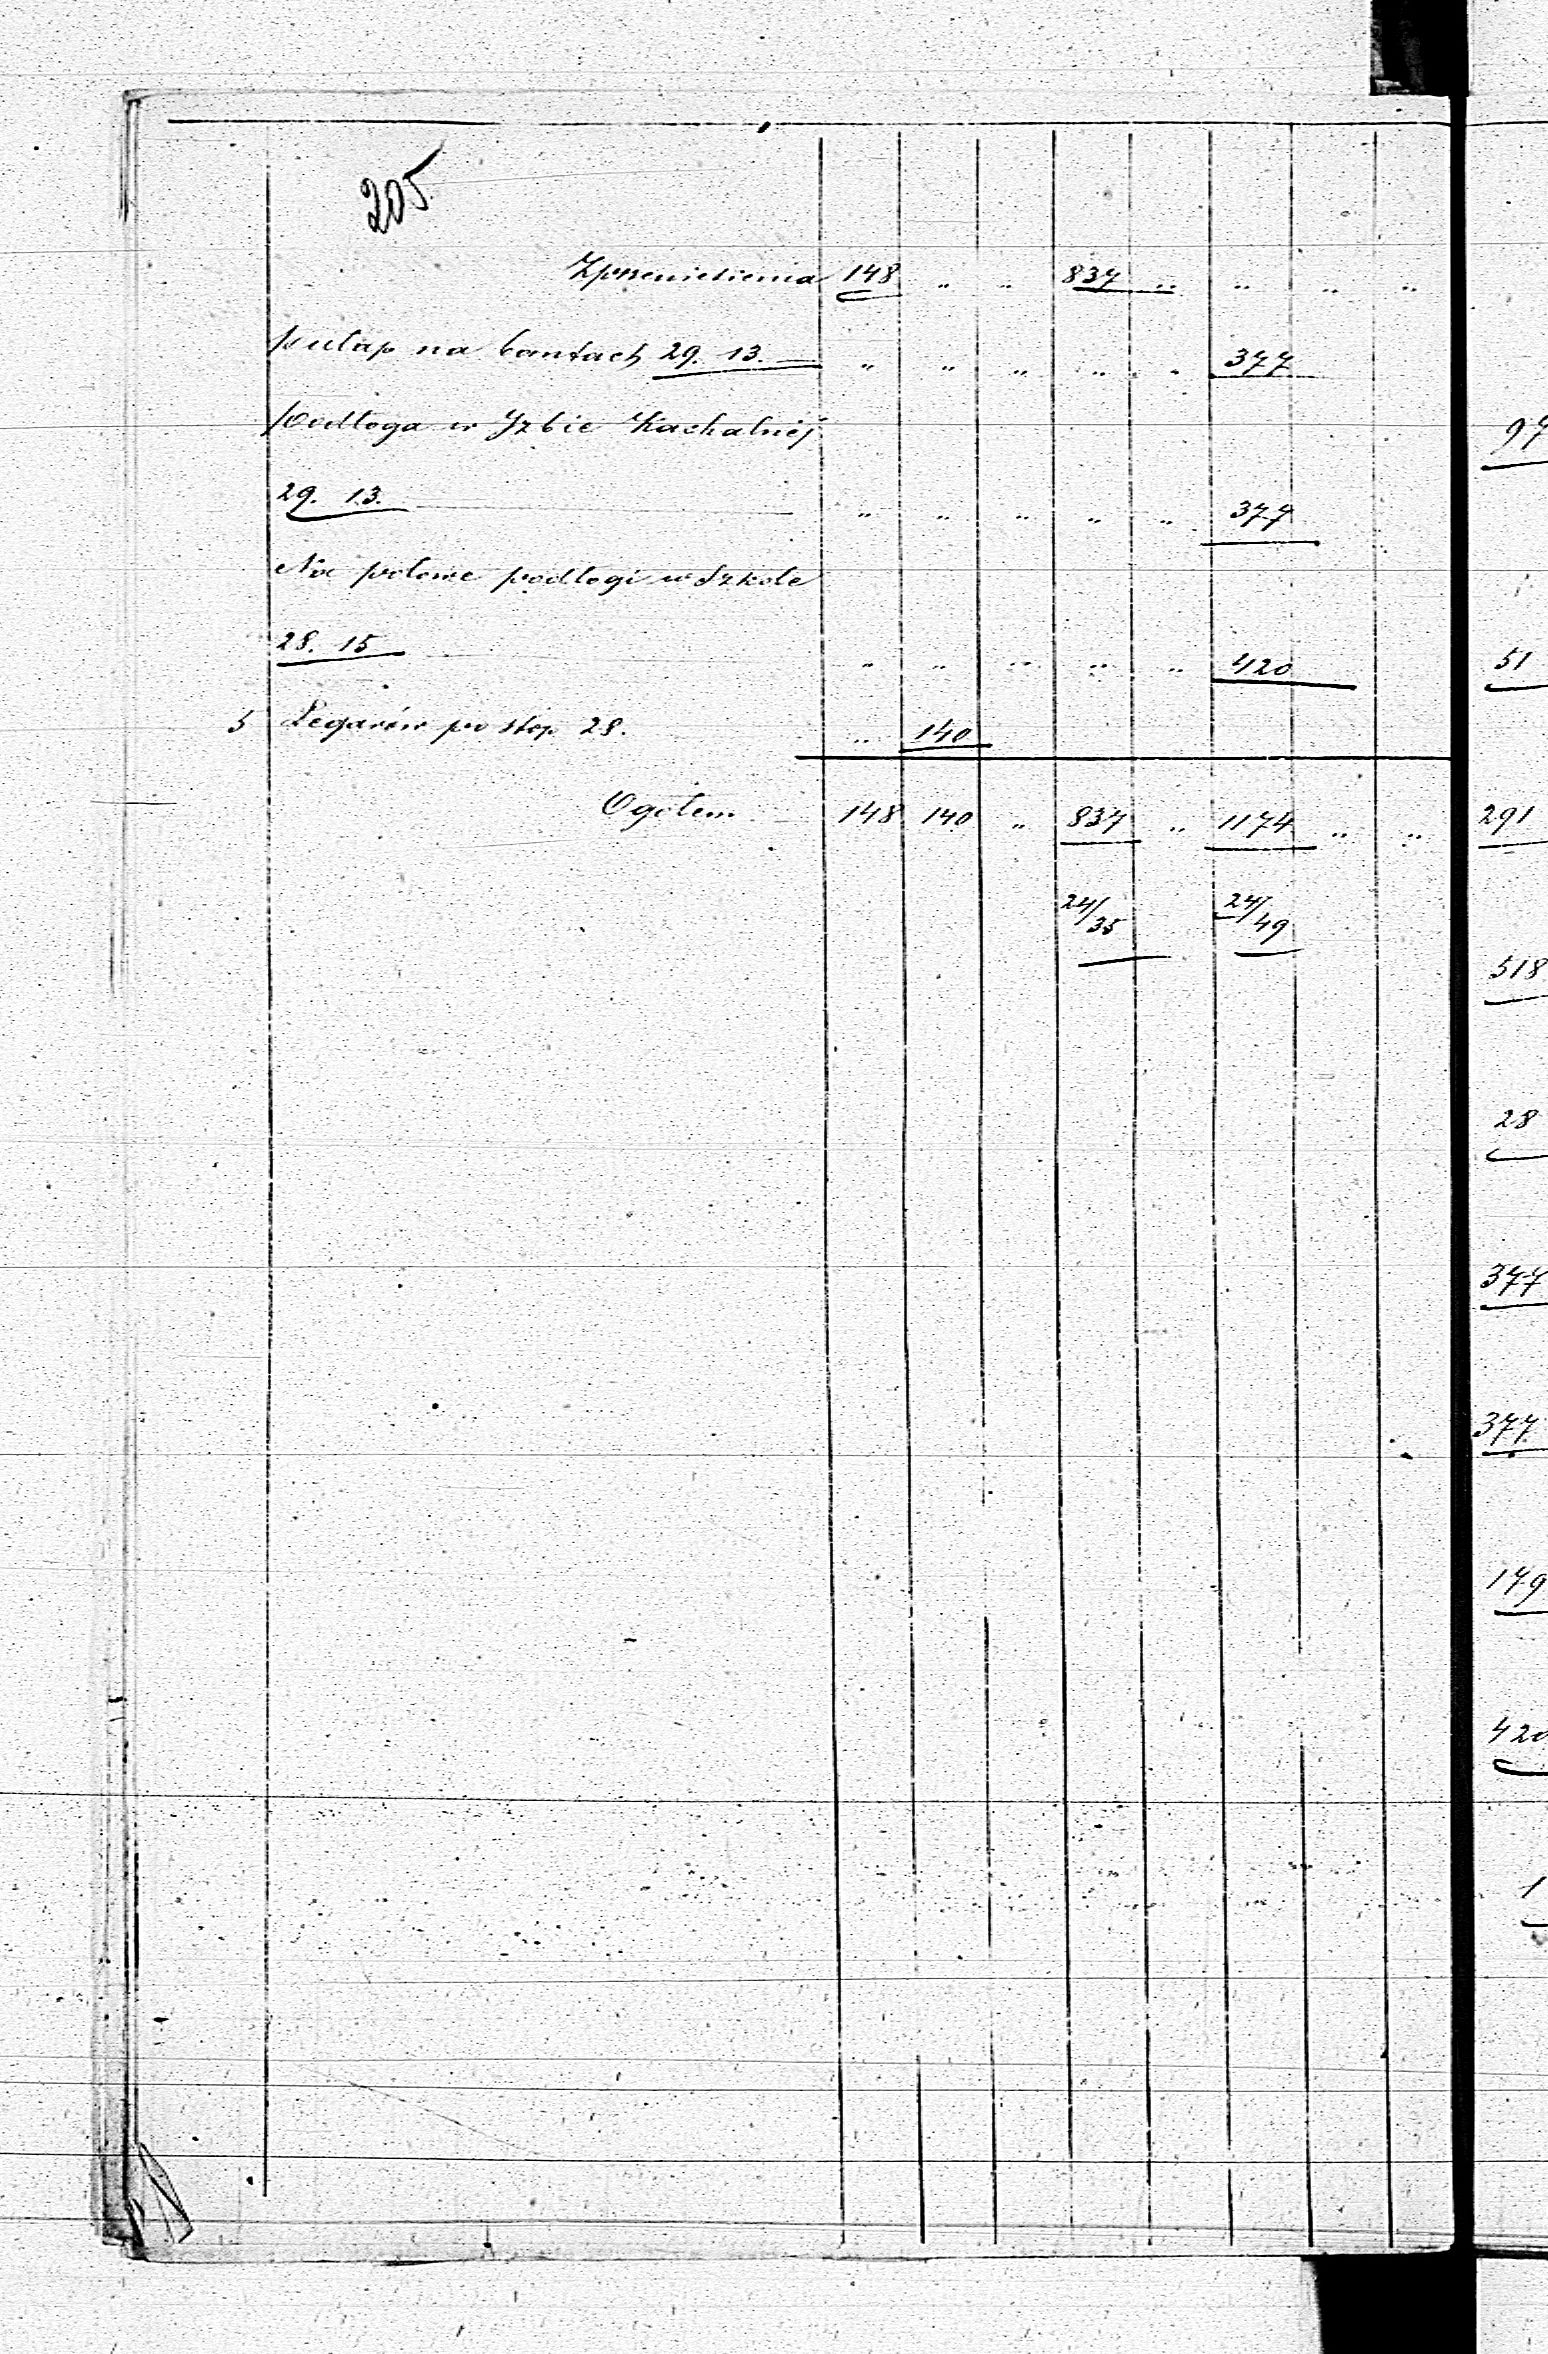 205
Zprzeniesienia 148 " " 837 " " " "
pulap na bantach 29. 13. " " " " " 377
Podloga w Jzbie Kachalnéj
29. 13. " " " " " 377
Na polowe podlogi w Szkole
28. 15 " " " " " 420
5 Legarów po stop 28. " 140
Ogólem 148 140 " 837 " 1174 " "
24/35 24/49
97
51
291
518
28
377
377
179
420
1